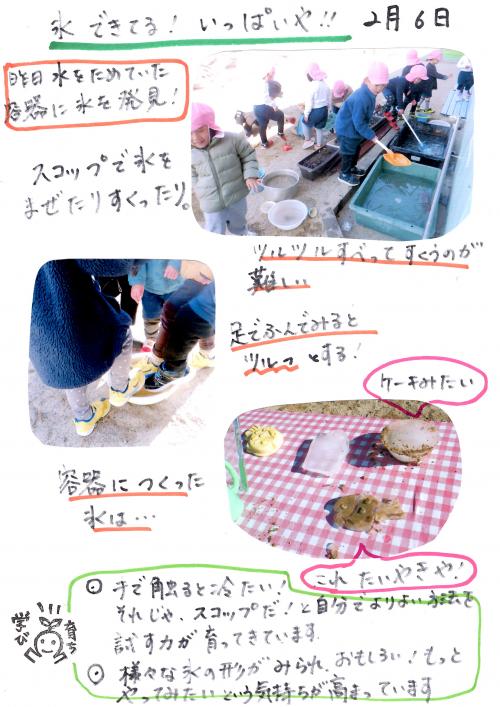 氷できてる！いっぱいや!! 2月6日
昨日水をためていた
容器に氷を発見！
スコップで氷を
まぜたりすくったり。
ツルツルすべってすくうのが
難しい
足でふんでみると
ツルッとする！
ケーキみたい
容器につくった
氷は…
これたいやきや！
学び 育ち
◎ 手で触ると冷たい！
それじゃ、スコップだ！と自分でよりよい方法を
試す力が育ってきています。
◎ 様々な氷の形がみられ、おもしろい！もっと
やってみたいという気持ちが高まっています